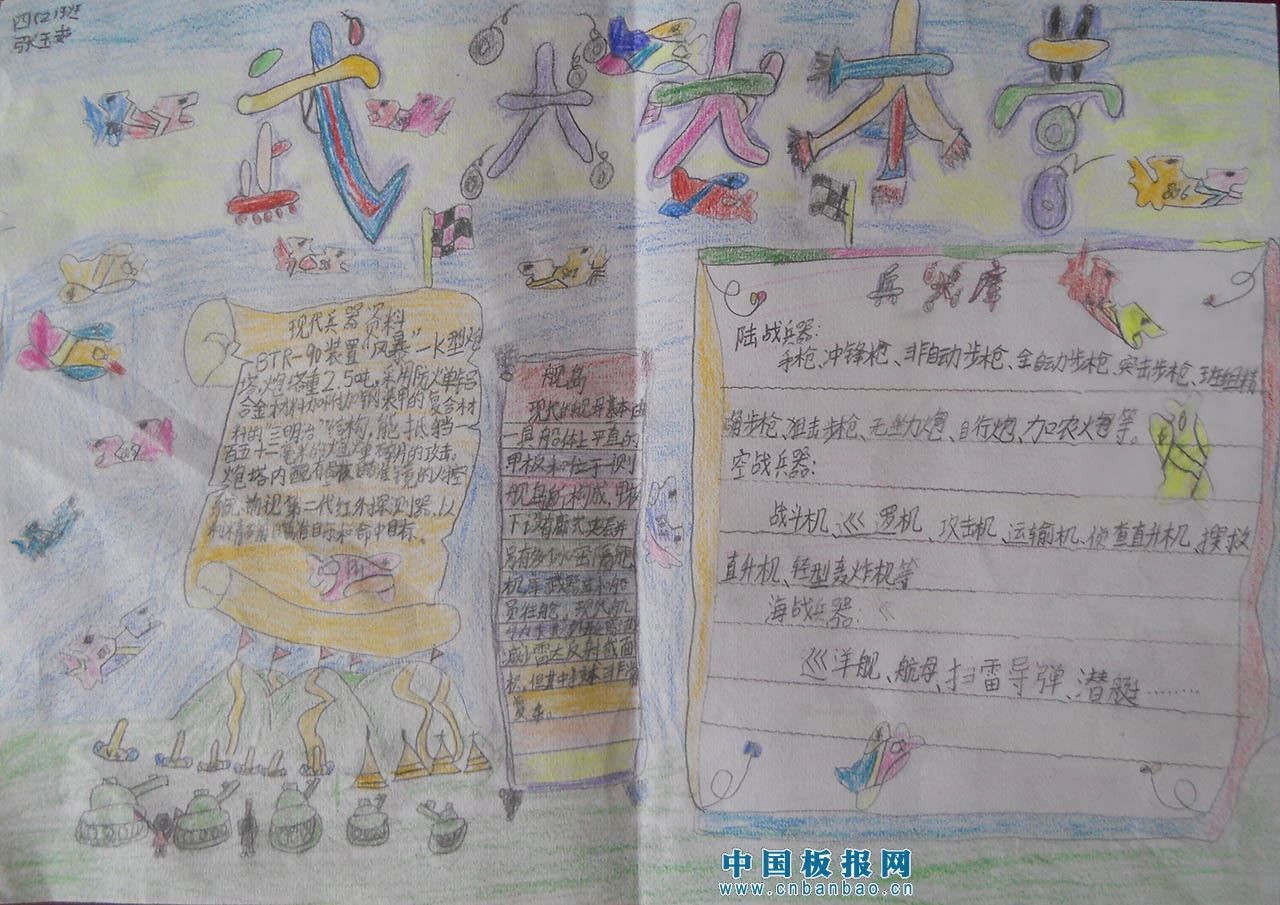 四(2)班
武火大本营
现代兵器资料
BTR-90装置"风暴"-K型炮
塔,炮塔重2.5吨,采用防火单铝
合金材料加附加钢装甲的复合材
料的"三明治"结构,能抵挡一
百五十二毫米的炮弹弹片的攻击。
炮塔内配有
的火控
系统,
第二代红外探测器,以
瞄准目标和命中目标。
舰岛
现代的航母基本由
一具船体上平直的
甲板和位于一侧
舰岛所构成,甲板
另有多
机库
员住舱,现代航
减少雷达反射截面
积,但其中
复杂。
兵火库
陆战兵器:
手枪、冲锋枪、非自动步枪、全自动步枪、突击步枪、班组精
确步枪、狙击步枪、无坐力炮、自行炮、加农火炮等。
空战兵器:
战斗机、巡逻机、攻击机、运输机、侦查直升机、搜救
直升机、轻型轰炸机等
海战兵器:
巡洋舰、航母、扫雷导弹、潜艇………
中国板报网
www.cnbanbao.cn